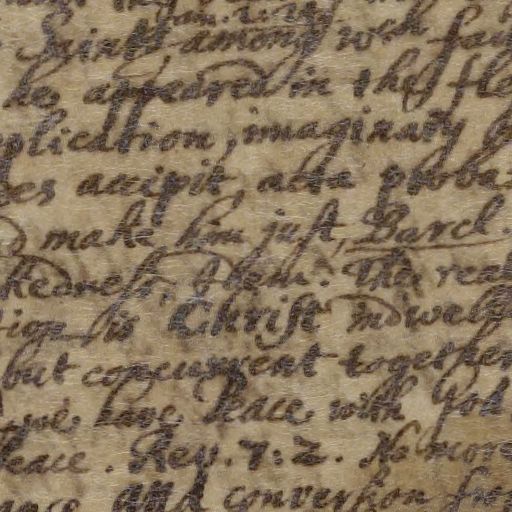 Saints among wch
he appeared in the fle
plication, imaginary
es accipit, acta proba
make him just, Barcl.
kedness, Idem. The real
ion is Christ indwell
but concurrent together
we have Peace with God
Peace. Rev. 7: 2. No more
and conversion